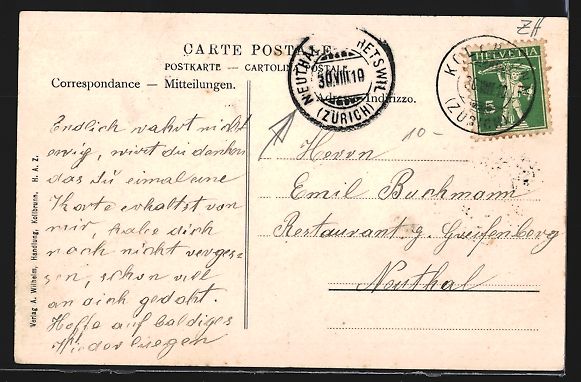 ZH
CARTE POSTALE
POSTKARTE — CARTOLINA POSTALE
Correspondance — Mitteilungen.
Indirizzo.
NEUTHAL HETSWIL
30.VIII.10
(ZÜRICH)
KOLLBRUNN
(ZÜRICH)
HELVETIA
5
10-
Endlich wahrt nicht
ewig, wirst du denken
das du eimal eine
Karte erhaltst von
mir, habe dich
noch nicht verges-
sen, schon vill
an dich gedaht.
Hoffe auf baldiges
Wiedersuegen
Herrn
Emil Buchmann
Restaurant z. Greifenberg
Neuthal
Verlag A. Wilhelm, Handlung, Kollbrunn. H. A. Z.